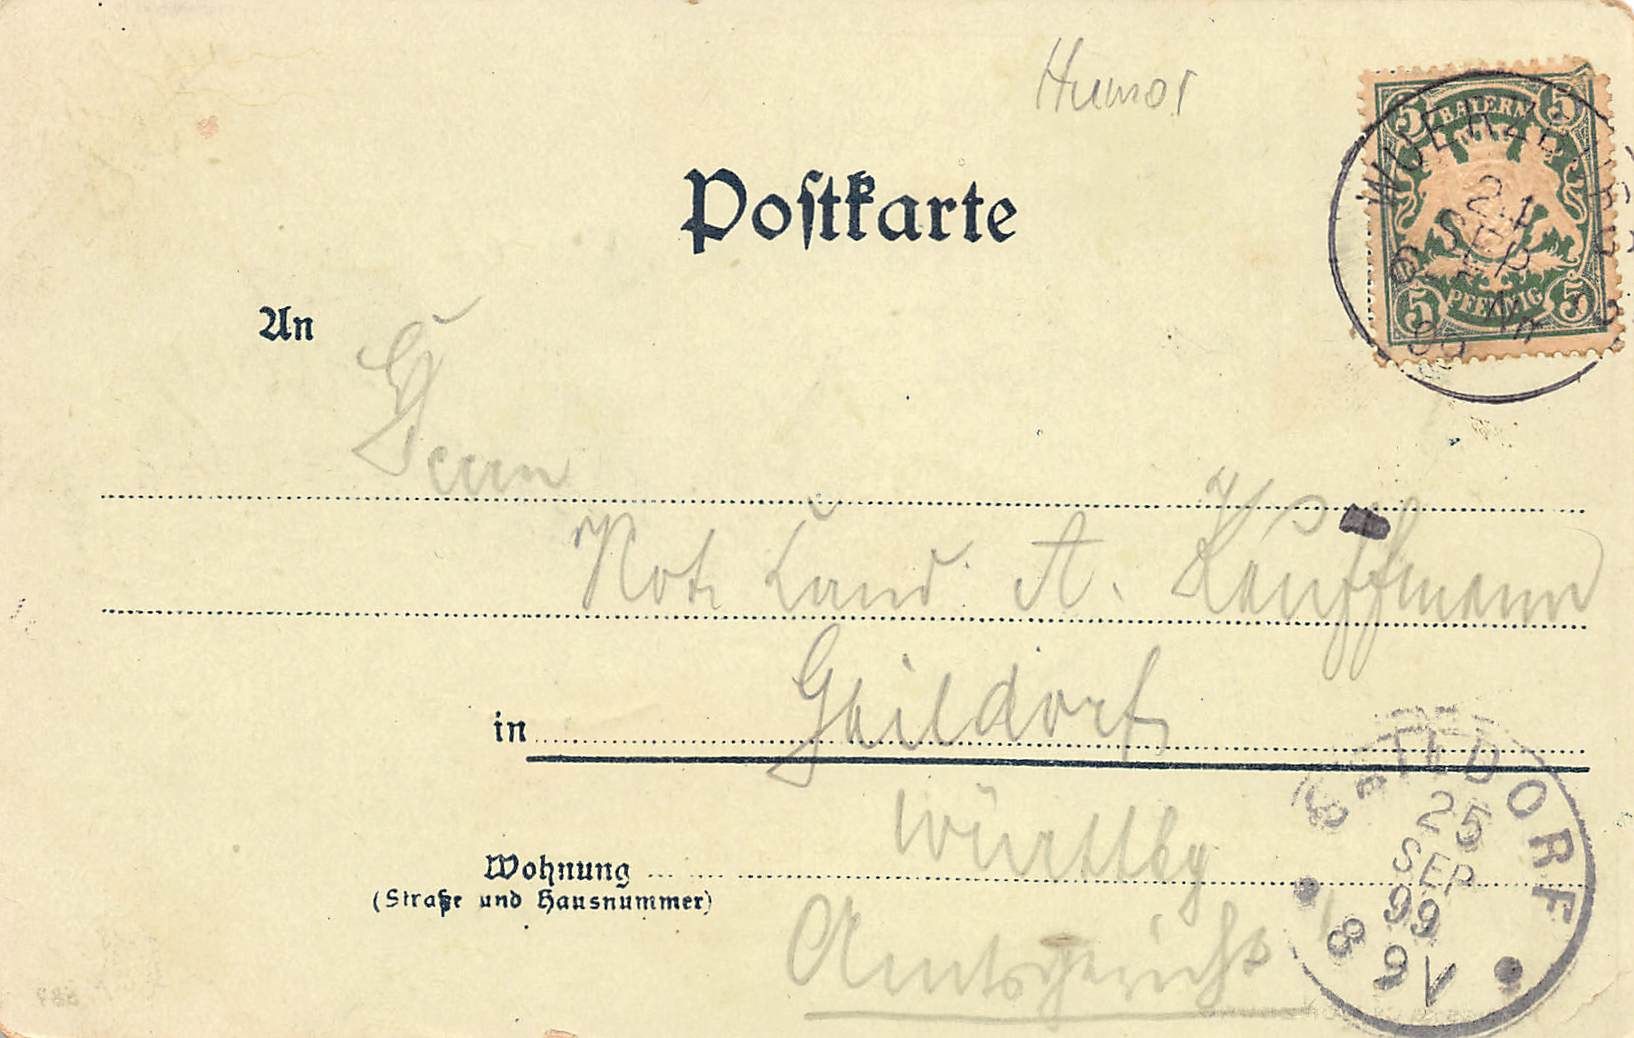 Humor
5 BAYERN 5
WUERZBURG
21
SEP
99
5 PFENNIG 5
Postkarte
An
Herrn
Not. Cand. A. Kauffmann
in Gaildorf
Württbg
Wohnung
(Straße und Hausnummer)
Amtsgericht
GAILDORF
25
SEP
99
8 9 V